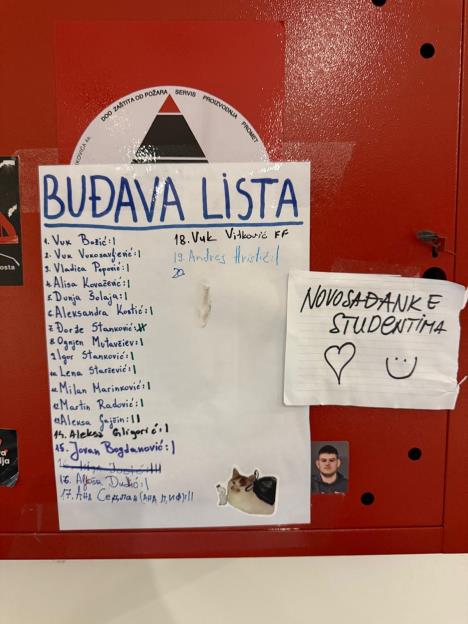 DOO ZAŠTITA OD POŽARA SERVIS PROIZVODNJA PROMET
BUĐAVA LISTA
1. Vuk Božić:|
2. Vuk Vukosavljević:|
3. Vladica Popović:|
4. Alisa Kovačević:|
5. Dunja Šolaja:|
6. Aleksandra Kostić:|
7. Đorđe Stanković:
8. Ognjen Mutavdžev:|
9. Igor Stanković:|
10. Lena Starčević:|
11. Milan Marinković:|
12. Martin Radović:|
13. Aleksa Gajčin:||
14. Aleksa Gligorić:|
15. Jovan Bogdanović:|
16. Aljoša Dudić:|
17. Ана Седлан (АНА
18. Vuk Vitković FF
19. Andrej Hristić:|
20
NOVOSAĐANKE
STUDENTIMA